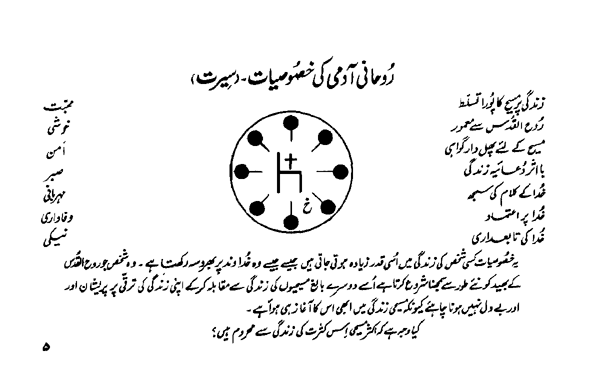 رُوحانی آدمی کی خصُوصیات - (سِیرت)
زندگی پر مسیح کا پُورا تسلّط
رُوحُ القُدس سے معمور
مسیح کے لئے پھل دار گواہی
بااثر دُعائیہ زندگی
خُدا کے کلام کی سمجھ
خُدا پر اعتماد
خُدا کی تابعداری
محبّت
خوشی
اَمن
صبر
مہربانی
وفاداری
نیکی
خ
یہ خصُوصیات کسی شخص کی زندگی میں اُسی قدر زیادہ ہوتی جاتی ہیں جیسے جیسے وہ خُداوند پر بھروسہ رکھتا ہے ۔ وہ شخص جو رُوح القُدس
کے بھید کو نئے طور سے سمجھنا شروع کرتا ہے اُسے دوسرے بالغ مسیحیوں کی زندگی سے مقابلہ کر کے اپنی زندگی کی ترقی پر پریشان اور
اور بے دل نہیں ہونا چاہئے کیونکہ مسیحی زندگی میں ابھی اس کا آغاز ہی ہوا ہے ۔
کیا وجہ ہے کہ اکثر مسیحی اِس کثرت کی زندگی سے محروم ہیں؟
۵